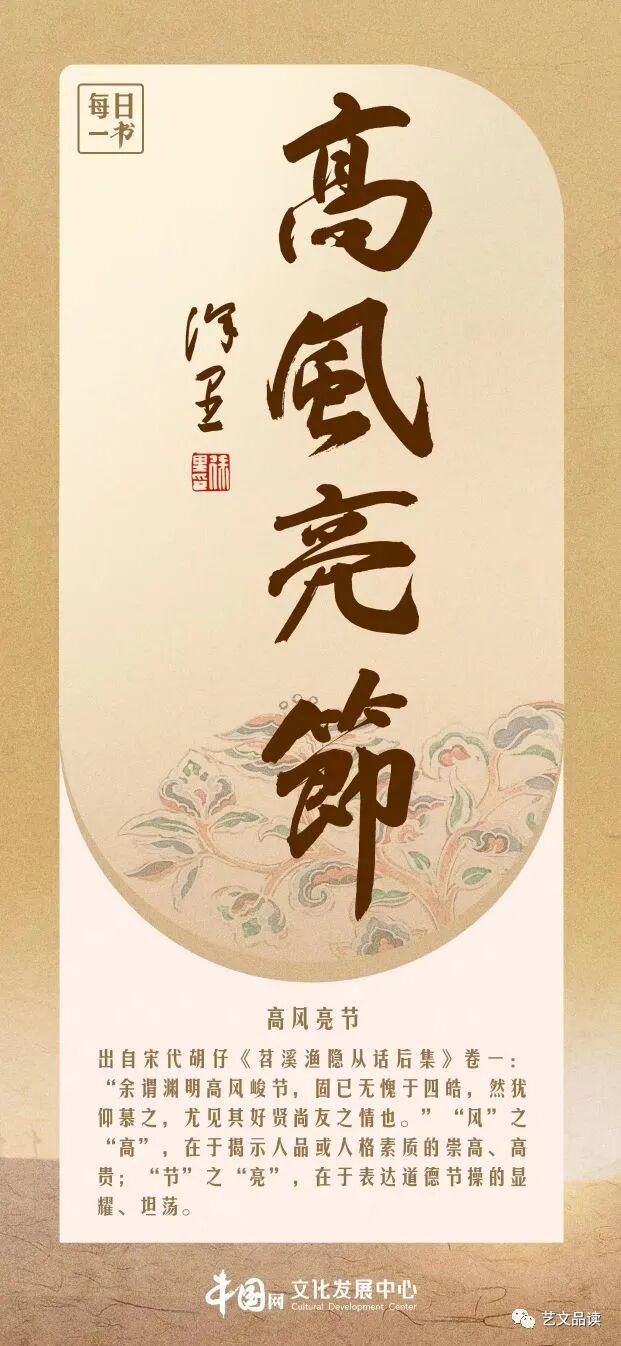 每日
一书
高風亮節
徐里
高风亮节
出自宋代胡仔《苕溪渔隐从话后集》卷一：
“余谓渊明高风峻节，固已无愧于四皓，然犹
仰慕之，尤见其好贤尚友之情也。”“风”之
“高”，在于揭示人品或人格素质的崇高、高
贵；“节”之“亮”，在于表达道德节操的显
耀、坦荡。
中国网 文化发展中心
Cultural Development Center
艺文品读